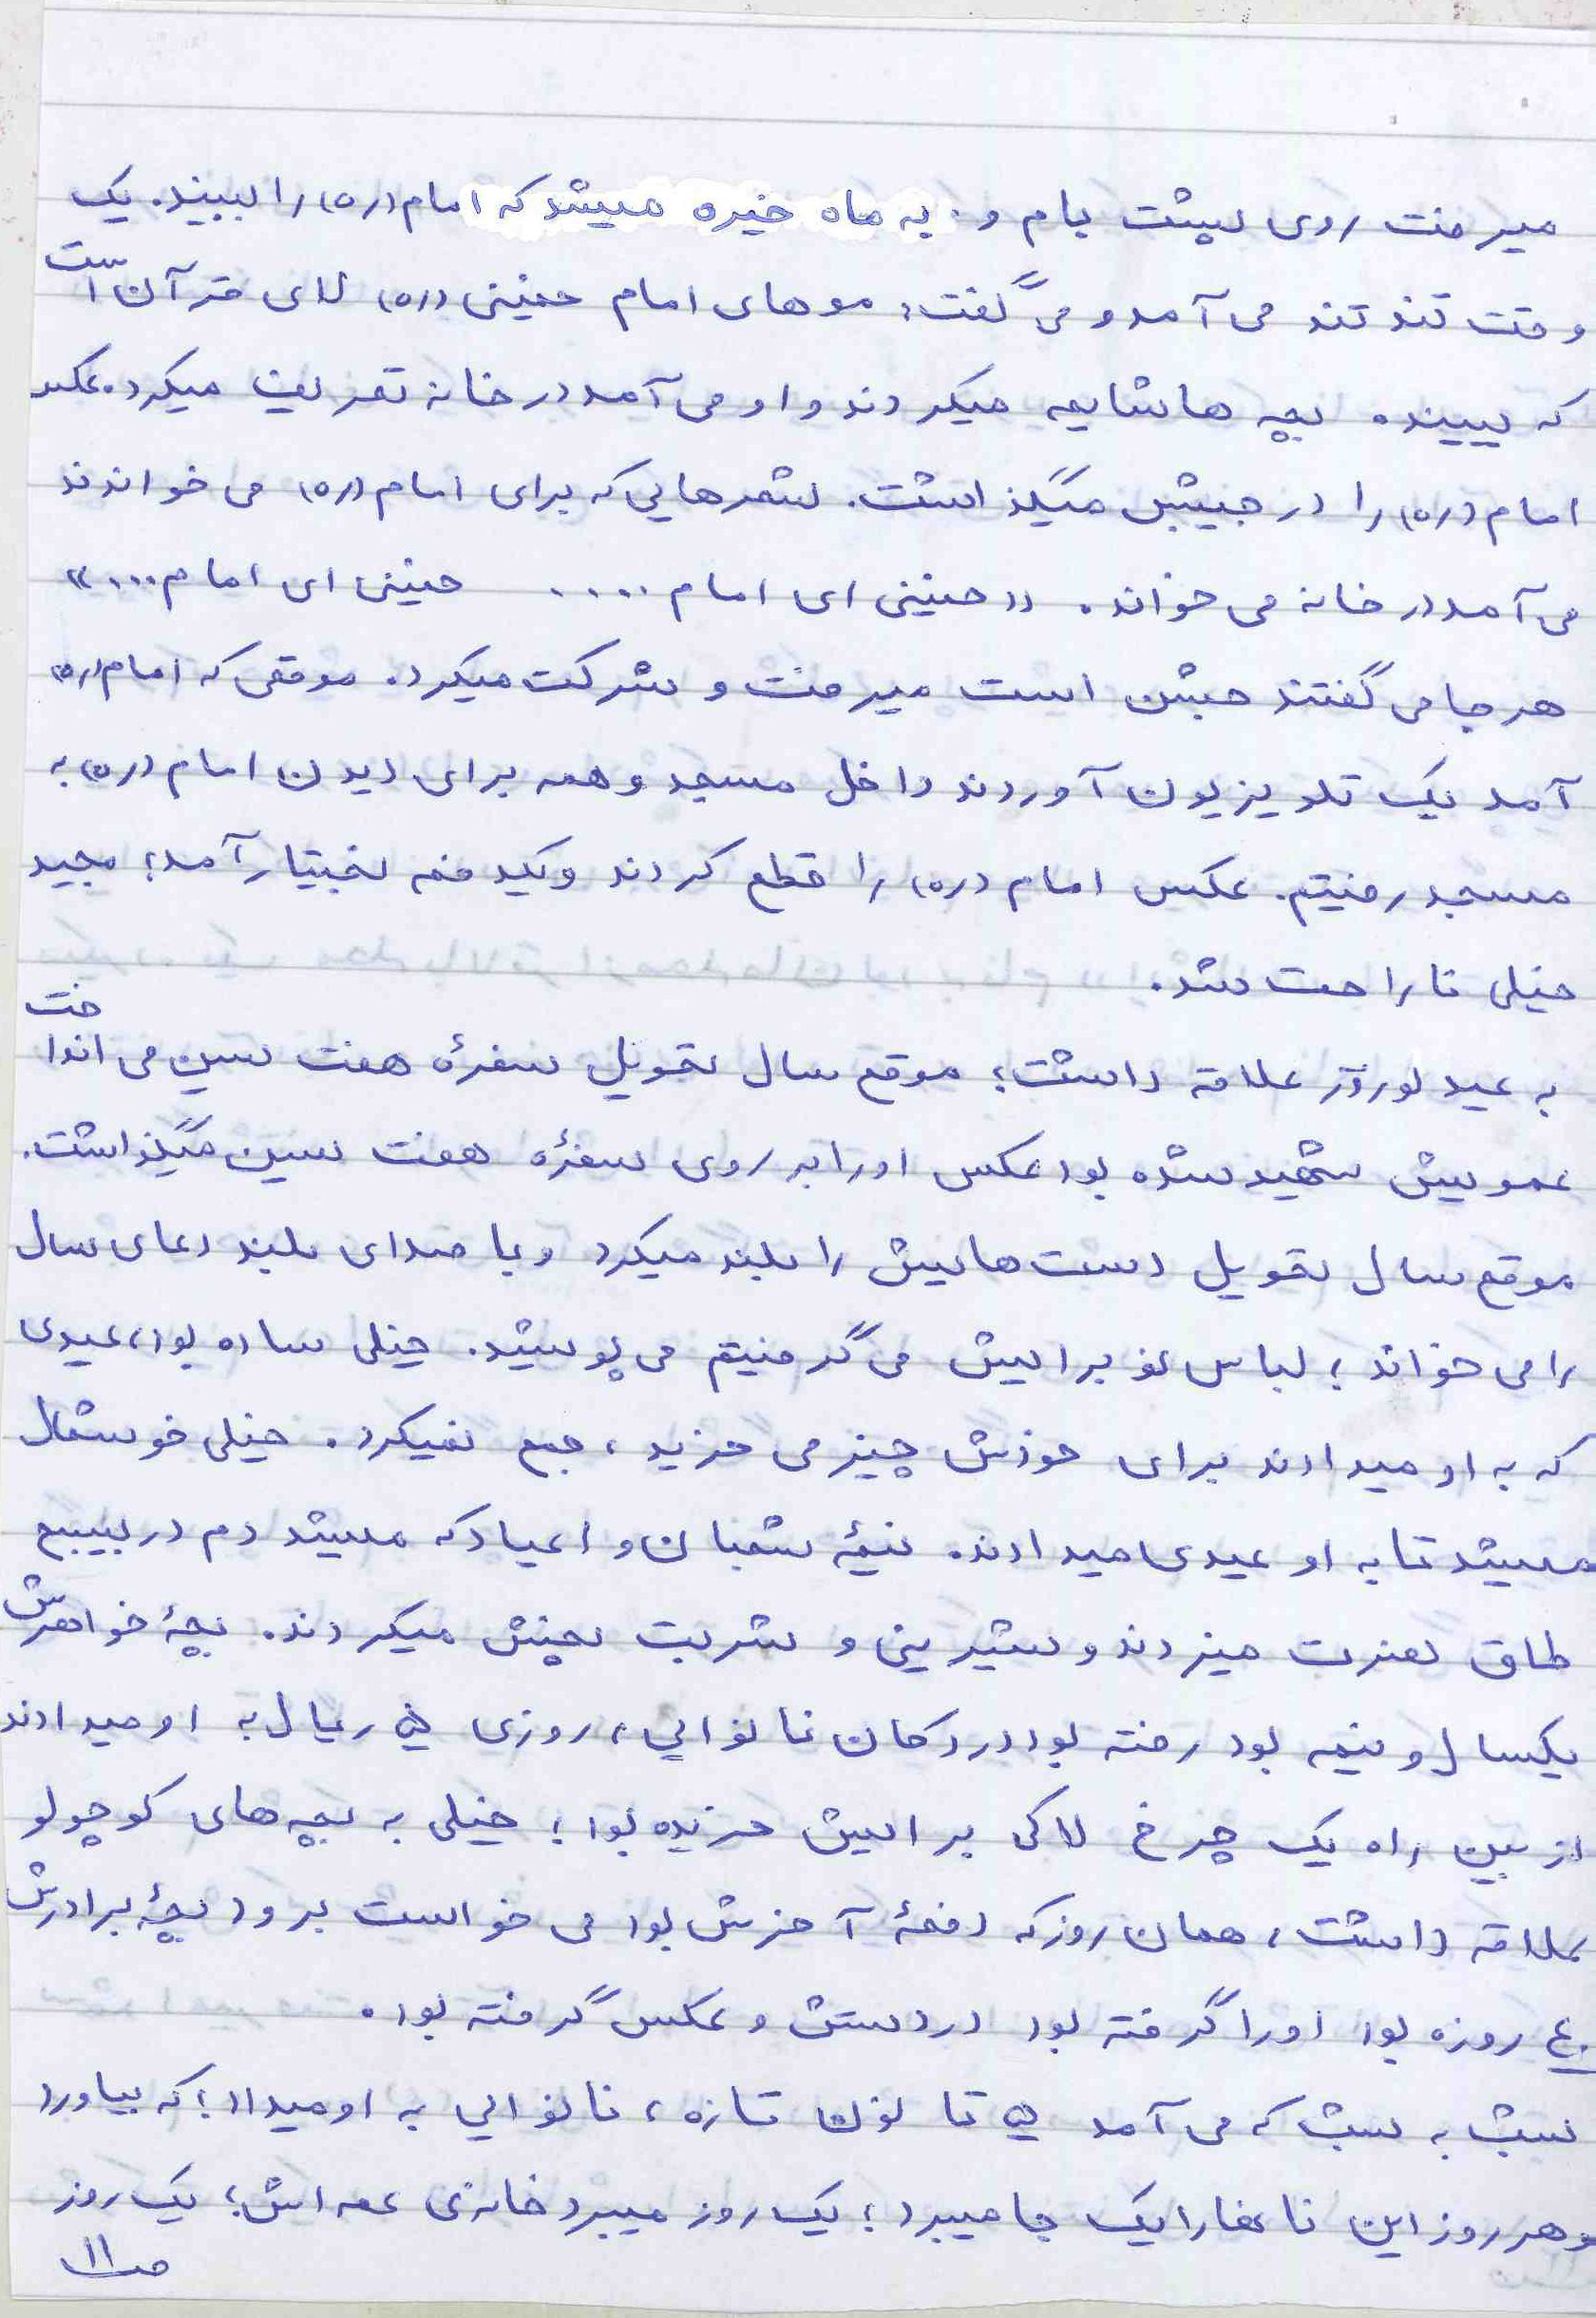 میرفت روی پشت بام و به ماه خیره میشد که امام(ره) را ببیند. یک
وقت تند تند می آمد و می گفت: موهای امام خمینی (ره) لای قرآن است
که ببینده بچه ها شایعه میکردند و او می آمد در خانه تعریف میکرد. عکس
امام (ره) را در جیبش میگذاشت. شعرهایی که برای امام (ره) می خواندند
می آمد در خانه می خواند. «خمینی ای امام .... خمینی ای امام ...»
هر جا می گفتند جشن است میرفت و شرکت میکرد. موقعی که امام (ره)
آمد یک تلویزیون آوردند داخل مسجد و همه برای دیدن امام (ره) به
مسجد رفتیم. عکس امام (ره) را قطع کردند و یکدفعه بختیار آمد؛ مجید
خیلی ناراحت شد.
به عید نوروز علاقه داشت؛ موقع سال تحویل سفرهٔ هفت سین می انداخت
عمویش شهید شده بود عکس او را به روی سفرهٔ هفت سین میگذاشت.
موقع سال تحویل دست هایش را بلند میکرد و با صدای بلند دعای سال
را می خواند؛ لباس نو برایش می گرفتیم می پوشید. خیلی ساده بود، عیدی
که به او میدادند برای خودش چیز می خرید، جمع نمیکرد. خیلی خوشحال
میشد تا به او عیدی میدادند. نیمهٔ شعبان و اعیاد که میشد دم در بسیج
طاق نصرت میزدند و شیرینی و شربت پخش میکردند. بچهٔ خواهرش
یکسال و نیمه بود رفته بود در دکان نانوایی، روزی ۵۰ ریال به او میدادند
از بین راه یک چرخ لاکی برایش خریده بود؛ خیلی به بچه های کوچولو
علاقه داشت، همان روز که دفعهٔ آخرش بود می خواست برود بچهٔ برادرش
۴۰ روزه بود او را گرفته بود در دستش و عکس گرفته بود.
شب به شب که می آمد ۵ تا نون تازه، نانوایی به او میداد؛ که بیاورد
و هر روز این نانها را یک جا میبرد؛ یک روز میبرد خانه ی عمه اش؛ یک روز
ص۱۱